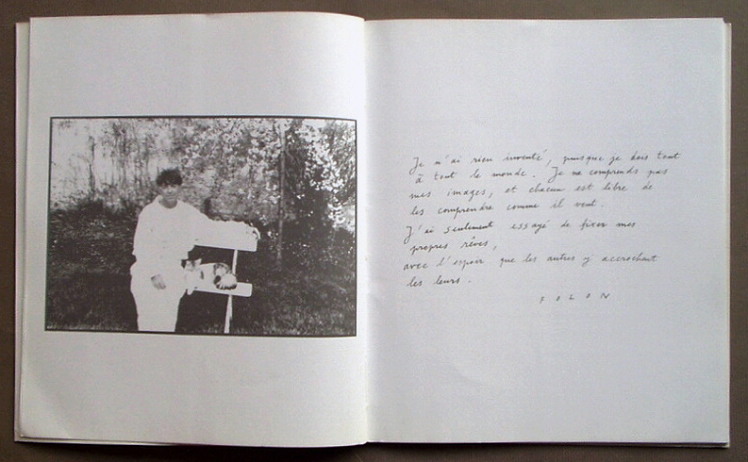 Je n'ai rien inventé, puisque je dois tout
à tout le monde. Je ne comprends pas
mes images, et chacun est libre de
les comprendre comme il veut.
J'ai seulement essayé de fixer mes
propres rêves,
avec l'espoir que les autres y accrochent
les leurs.
FOLON